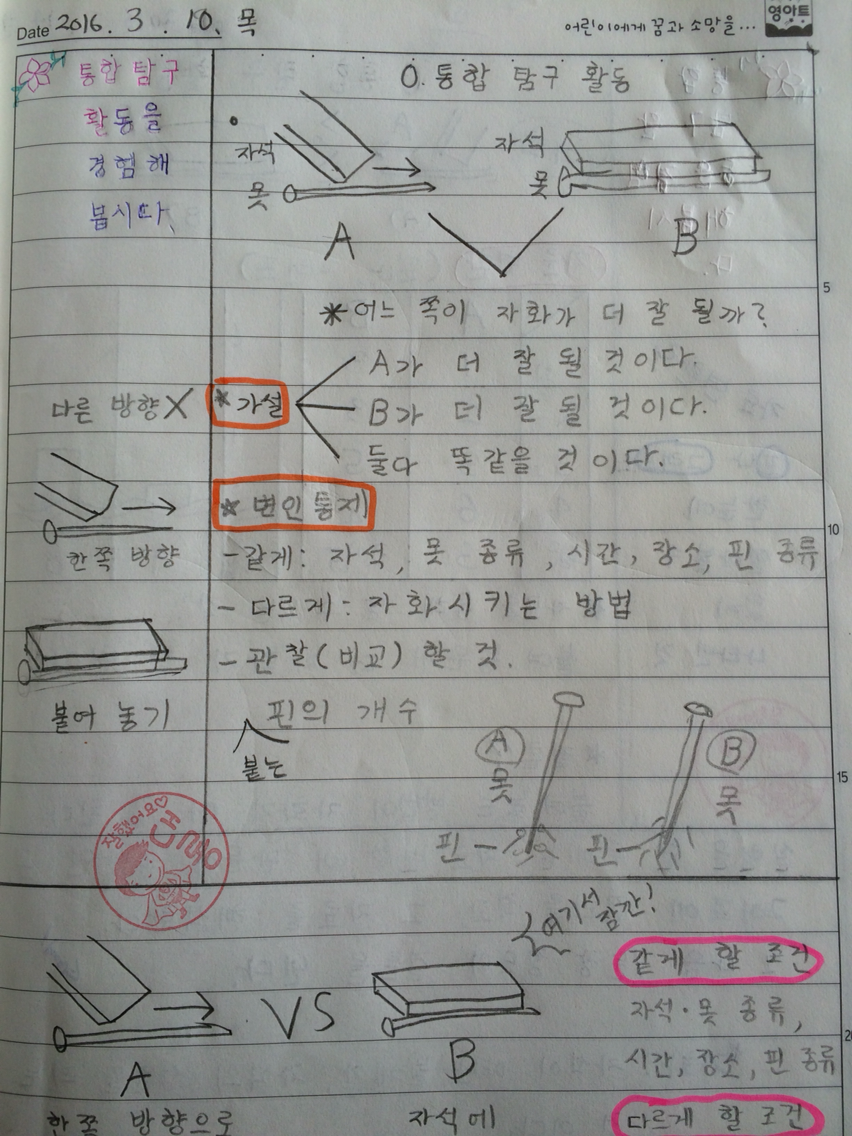 Date 2016. 3. 10. 목
어린이에게 꿈과 소망을...
영아트
통합 탐구
활동을
경험해
봅시다.
0. 통합 탐구 활동
자석
못
A
자석
못
B
*어느 쪽이 자화가 더 잘 될까?
*가설
A가 더 잘 될 것이다.
B가 더 잘 될 것이다.
둘다 똑같을 것이다.
다른 방향 X
한쪽 방향
붙여 놓기
*변인통제
-같게: 자석, 못 종류, 시간, 장소, 핀 종류
-다르게: 자화시키는 방법
-관찰(비교)할 것.
핀의 개수
붙는
A
못
핀
B
못
핀
5
10
15
20
잘했어요♡
여기서 잠깐!
A
VS
B
한쪽 방향으로
자석에
같게 할 조건
자석·못 종류,
시간, 장소, 핀 종류
다르게 할 조건